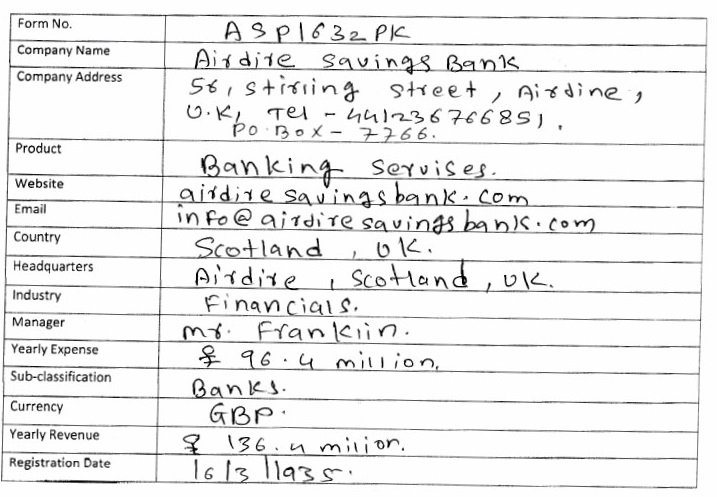 Form No. ASP1632PK
Company Name Airdire Savings Bank
Company Address 56, Stirling Street, Airdine,
U.K, Tel - 441236766851,
PO.Box - 7766.
Product Banking Servises.
Website airdiresavingsbank.com
Email info@airdiresavingsbank.com
Country Scotland, UK.
Headquarters Airdire, Scotland, UK.
Industry Financials.
Manager Mr. Franklin.
Yearly Expense £ 96.4 million.
Sub-classification Banks.
Currency GBP.
Yearly Revenue £ 136.4 milion.
Registration Date 16/3/1935.